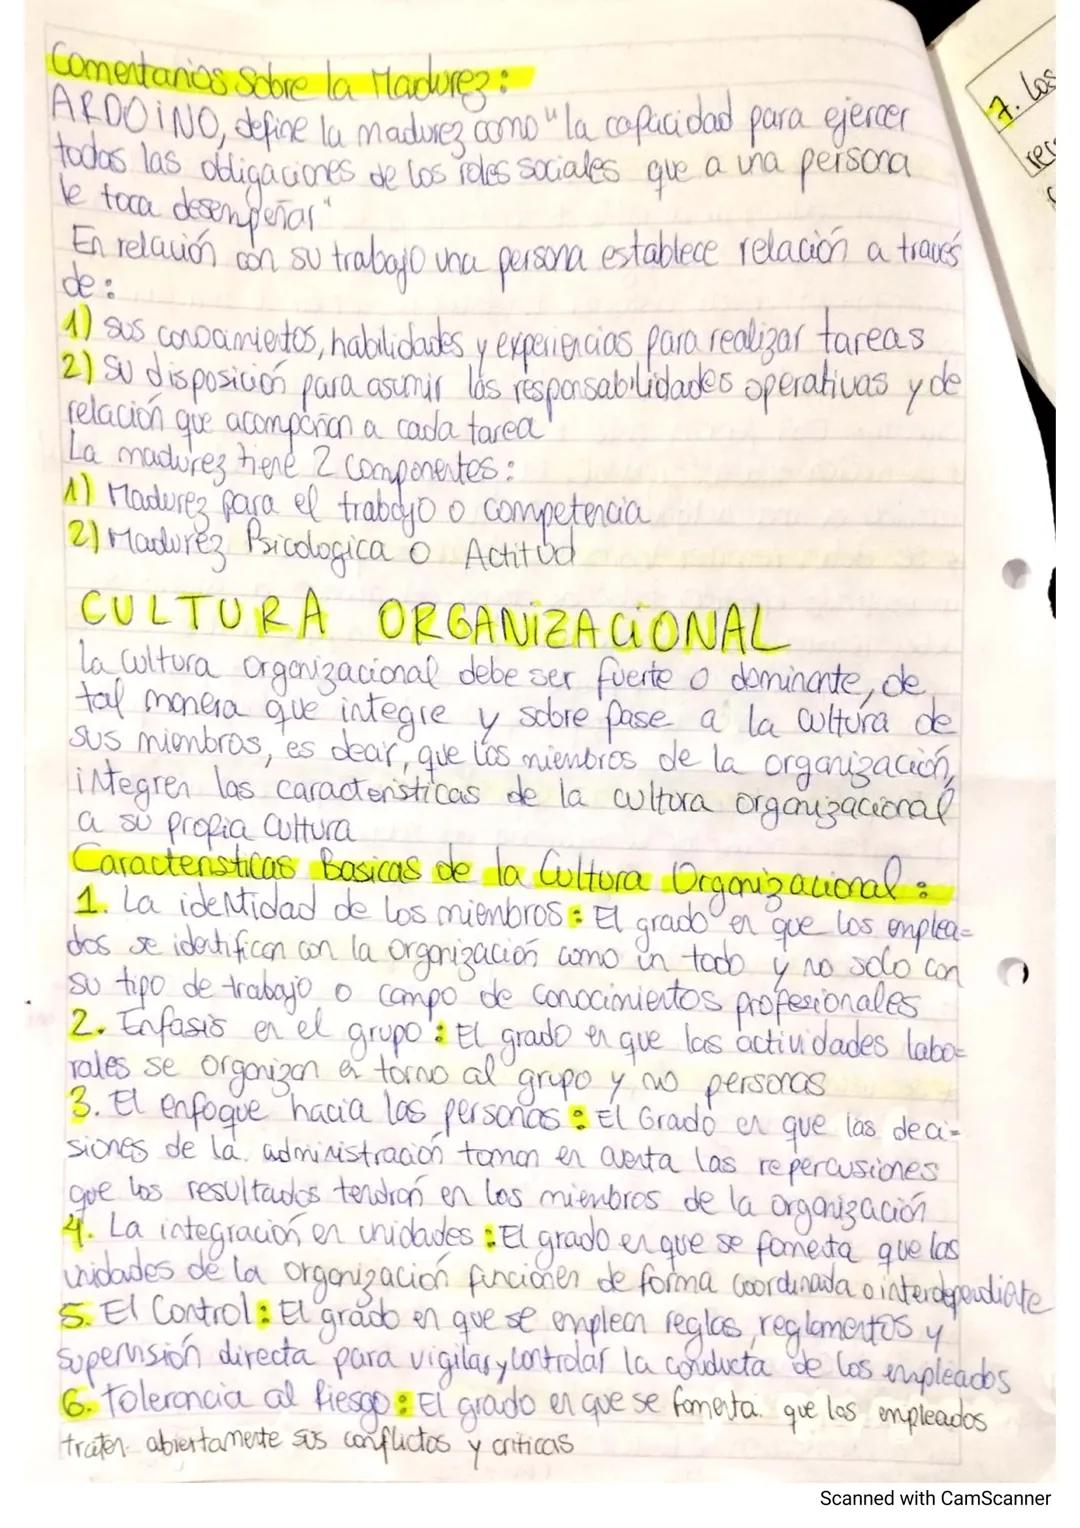 Comentarios Sobre la Madurez:
ARDOiNO, define la madurez como "la capacidad para ejercer
todas las obligaciones de los roles sociales que a una persona
le toca desempeñar"
En relación con su trabajo una persona establece relación a través
de:
1) sus conocimientos, habilidades y experiencias para realizar tareas
2) Su disposición para asumir las responsabilidades operativas y de
relación que acompañan a cada tarea
La madurez tiene 2 componentes:
1) Madurez para el trabajo o competencia
2) Madurez Psicologica o Actitud
CULTURA ORGANiZACiONAL
La cultura organizacional debe ser fuerte o dominante, de
tal manera que integre y sobre pase a la cultura de
sus miembros, es decir, que los miembros de la organización,
integren las caracteristicas de la cultura organizacional
a su propia cultura
Caracteristicas Basicas de la Cultura Organizacional:
1. La identidad de los miembros: El grado en que los emplea-
dos se identifican con la organización como un todo y no solo con
su tipo de trabajo o campo de conocimientos profesionales
2. Enfasis en el grupo: El grado en que las actividades labo-
rales se organizan en torno al grupo y no personas
3. El enfoque hacia las personas: El Grado en que las deci-
siones de la administración toman en cuenta las repercusiones
que los resultados tendrán en los miembros de la organización
4. La integración en unidades: El grado en que se fomenta que las
unidades de la organización funcionen de forma coordinada o interdependiente
5. El Control: El grado en que se emplean reglas, reglamentos y
supervisión directa para vigilar y controlar la conducta de los empleados
6. Tolerancia al Riesgo: El grado en que se fomenta que los empleados
traten abiertamente sus conflictos y criticas
7. Los
Scanned with CamScanner